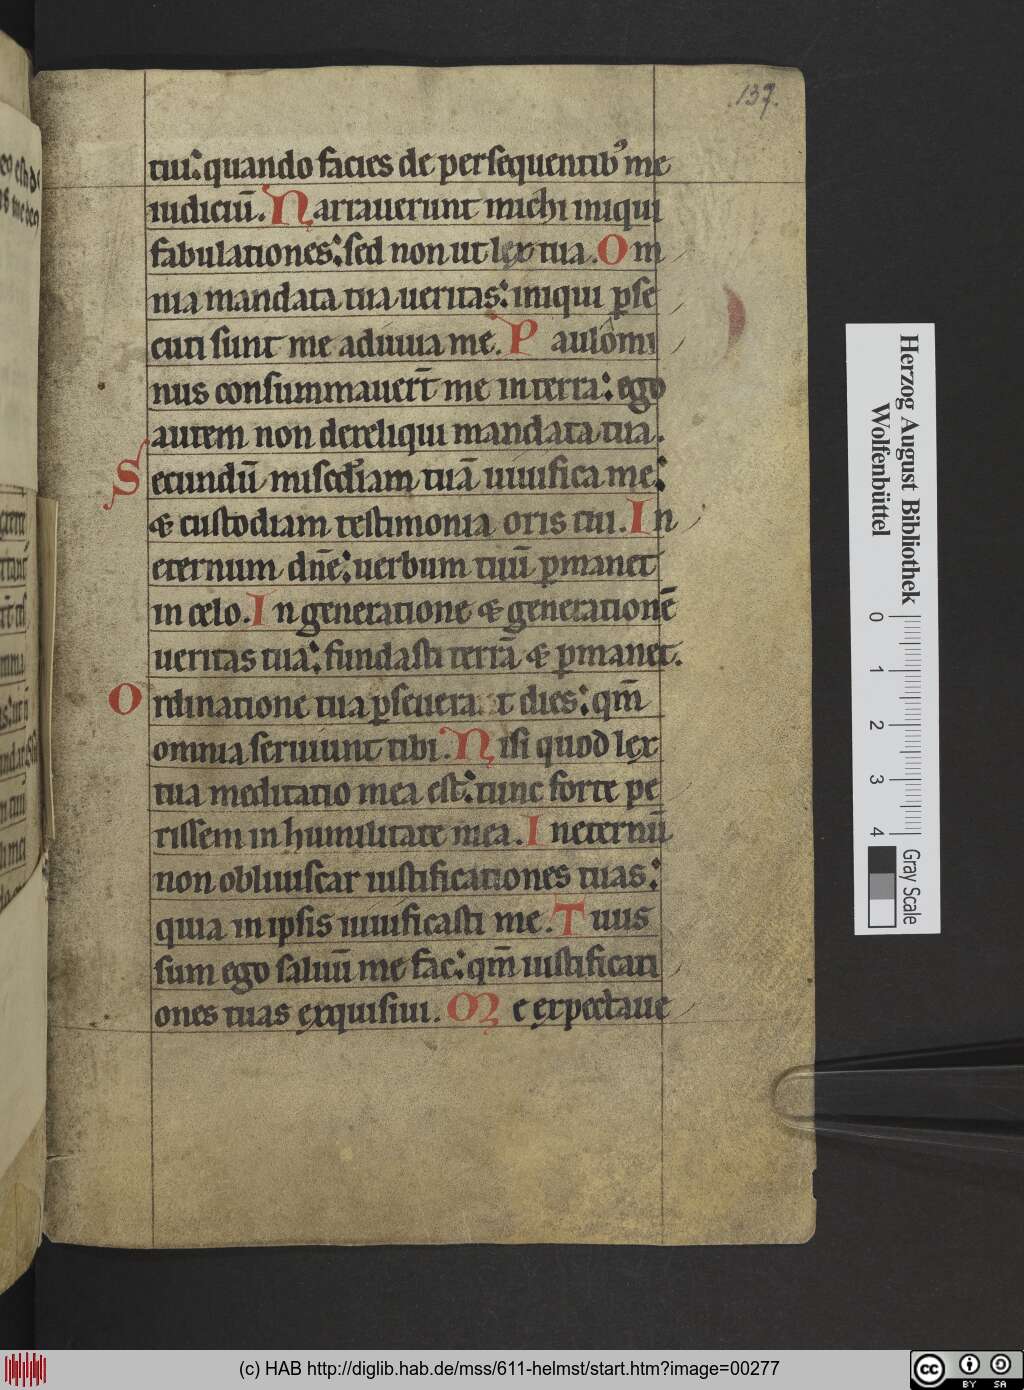 137.
tui: quando facies de persequentib' me
iudiciū. Narrauerunt michi iniqui
fabulationes: sed non ut lex tua. Om
nia mandata tua ueritas: iniqui ꝑse
cuti sunt me adiuua me. Paulomi
nus consummauert̄ me in terra: ego
autem non dereliqui mandata tua.
Secundū misedīam tuā uiuifica me:
& custodiam testimonia oris tui. In
eternum dn̄e: uerbum tuū ꝑmanet
in celo. In generatione & generationē
ueritas tua: fundasti terrā & ꝑmanet.
Ordinatione tua ꝑseuerant dies: qm̄
omnia seruiunt tibi. Nisi quod lex
tua meditatio mea est: tunc forte pe
rissem in humilitate mea. In eternū
non obliuiscar iustificationes tuas:
quia in ipsis uiuificasti me. Tuus
sum ego saluū me fac: qm̄ iustificati
ones tuas exquisiui. Me expectaue
Herzog August Bibliothek
Wolfenbüttel
0 1 2 3 4
Gray Scale
(c) HAB http://diglib.hab.de/mss/611-helmst/start.htm?image=00277
cc BY SA